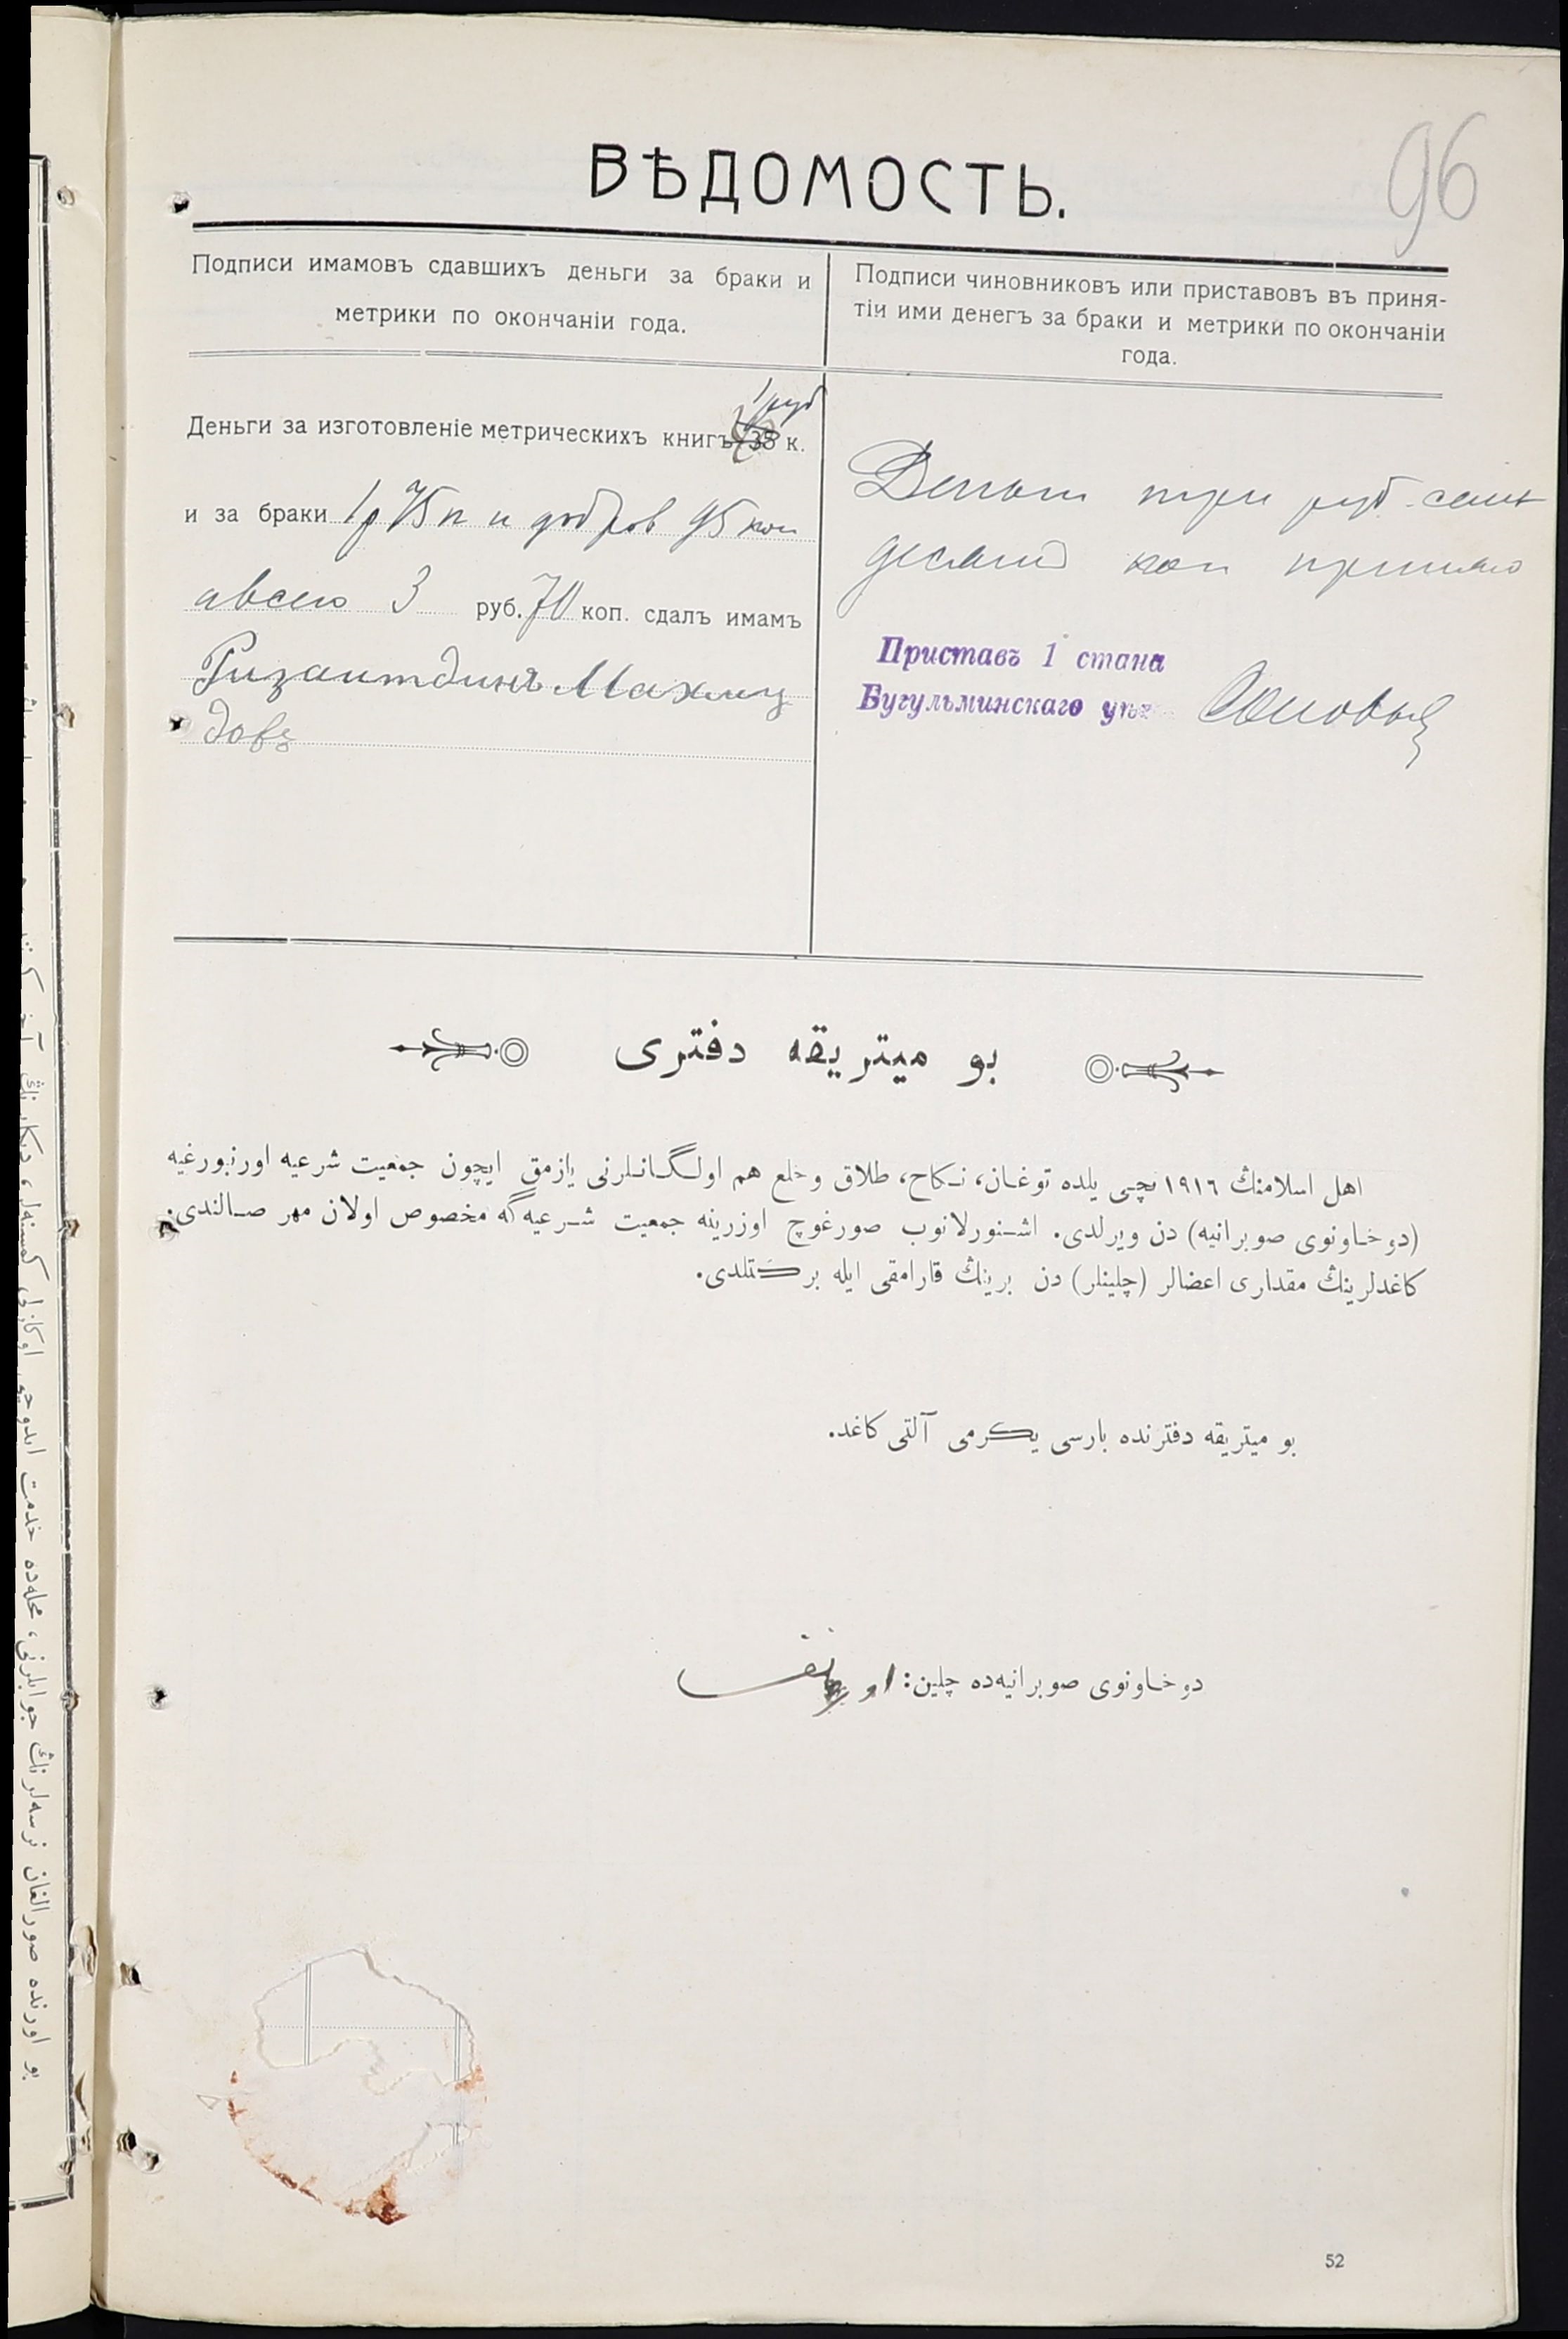 96
ВѢДОМОСТЬ.
Подписи имамовъ сдавшихъ деньги за браки и
метрики по окончаніи года.
Подписи чиновниковъ или приставовъ въ приня-
тіи ими денегъ за браки и метрики по окончаніи
года.
1 руб
Деньги за изготовленіе метрическихъ книгъ 38 к.
и за браки 1 р 75 к и добров 95 коп
а всего 3 руб. 70 коп. сдалъ имамъ
Ризаитдинъ Махму
довъ
Деньги три руб. семь
десят коп принял
Приставъ 1 стана
Бугульминскаго уѣз
بو ميتريقه دفترى
اهل اسلامنڭ ١٩١٦ نچـى يلده توغـان، نـكاح، طلاق وخلع هم اولـگـانـلرنى يازمق ايچون جمعيت شرعيه اورنبورغيه
(دوخـاونوى صوبرانيه) دن ويرلدى. اشـنورلانوب صورغوچ اوزرينه جمعيت شـرعيه گه مخصوص اولان مهر صـالندى.
كاغدلرينڭ مقدارى اعضالر (چلينلر) دن برينڭ قارامقى ايله بركتلدى.
بو ميتريقه دفترنده بارسى يكرمى آلتى كاغد.
دوخـاونوى صوبرانيه‌ده چلين:
52